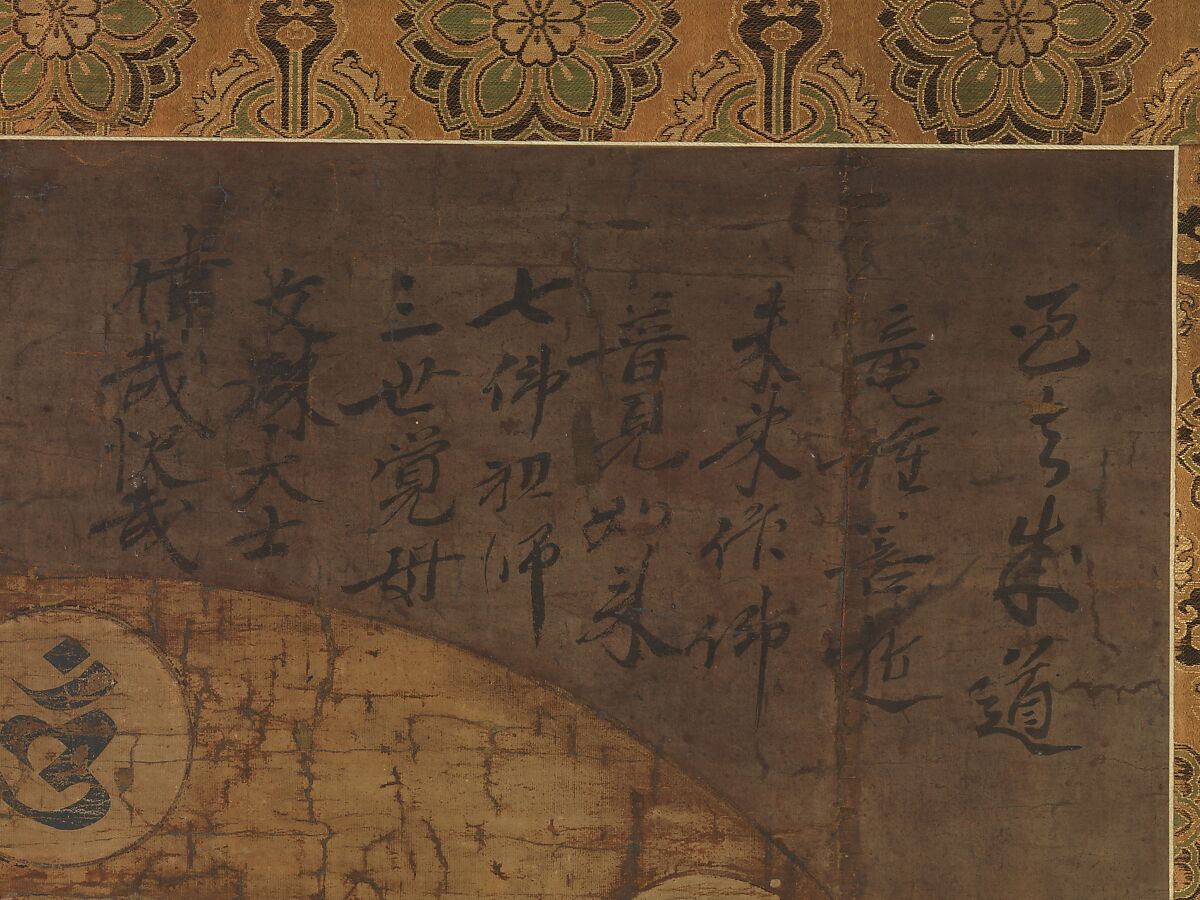 過去成道
竜種善逝
未来作佛
普見如来
七佛祖師
三世覚母
文殊大士
偉哉快哉